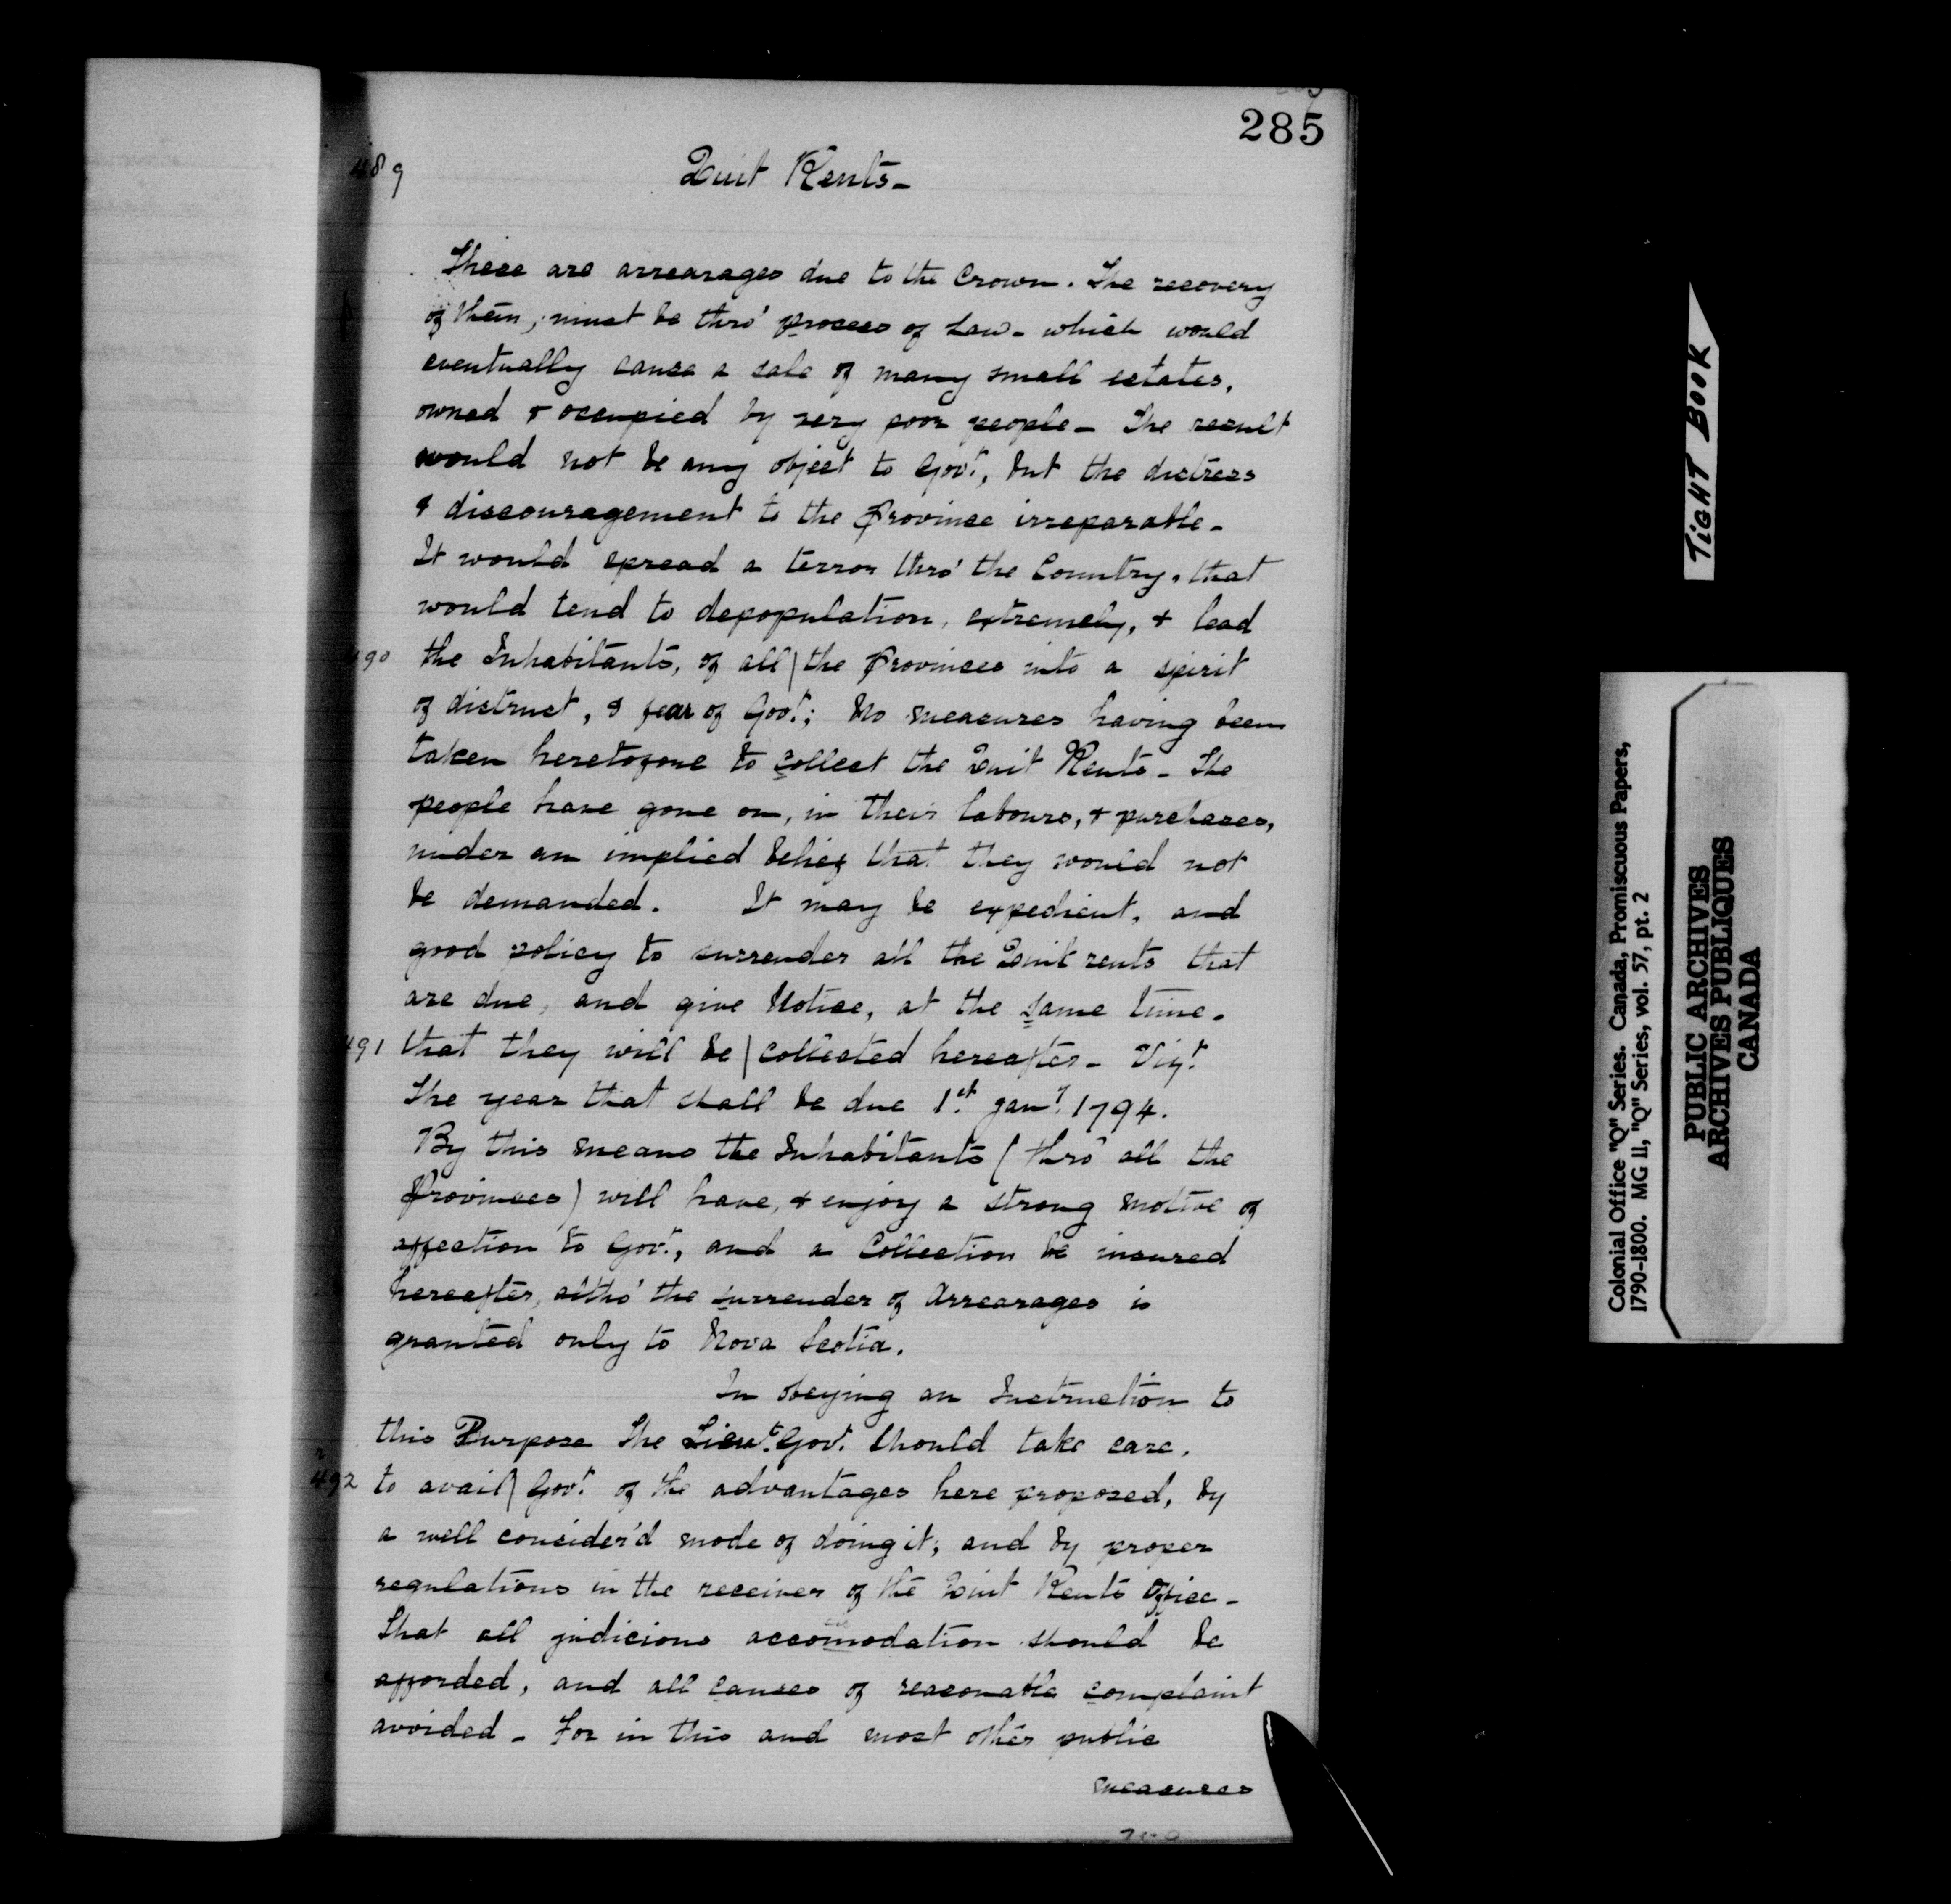 285
489
Quit Rents-
These are arrearages due to the Crown. The recovery
of them, must be thro' process of Law - which would
eventually cause a sale of many small estates,
owned & occupied by very poor people - The result
would not be any object to Gov.t, but the distress
& discouragement to the Province irreparable -
It would spread a terror thro' the Country, that
would tend to depopulation, extremely, & lead
490 the Inhabitants, of all | the Provinces into a spirit
of distrust, & fear of Gov.t; No measures having been
taken heretofore to collect the Quit Rents - The
people have gone on, in their labours, & purchases,
under an implied belief that they would not
be demanded. It may be expedient, and
good policy to surrender all the Quit rents that
are due, and give Notice, at the same time.
491 that they will be | collected hereafter - Viz.t
The year that shall be due 1.st Jan.y 1794.
By this means the Inhabitants (thro' all the
Provinces) will have, & enjoy a strong motive of
affection to Gov.t, and a Collection be insured
hereafter, altho' the surrender of Arrearages is
granted only to Nova Scotia.
In obeying an Instruction to
this Purpose The Lieu.t Gov.r should take care.
492 to avail | Gov.t of the advantages here proposed, by
a well consider'd mode of doing it; and by proper
regulations in the receiver of the Quit Rents Office -
That all judicious accomodation should be
afforded, and all causes of reasonable complaint
avoided - For in this and most other public
measures
TIGHT BOOK
Colonial Office "Q" Series. Canada, Promiscuous Papers,
1790-1800. MG 11, "Q" Series, vol. 57, pt. 2
PUBLIC ARCHIVES
ARCHIVES PUBLIQUES
CANADA